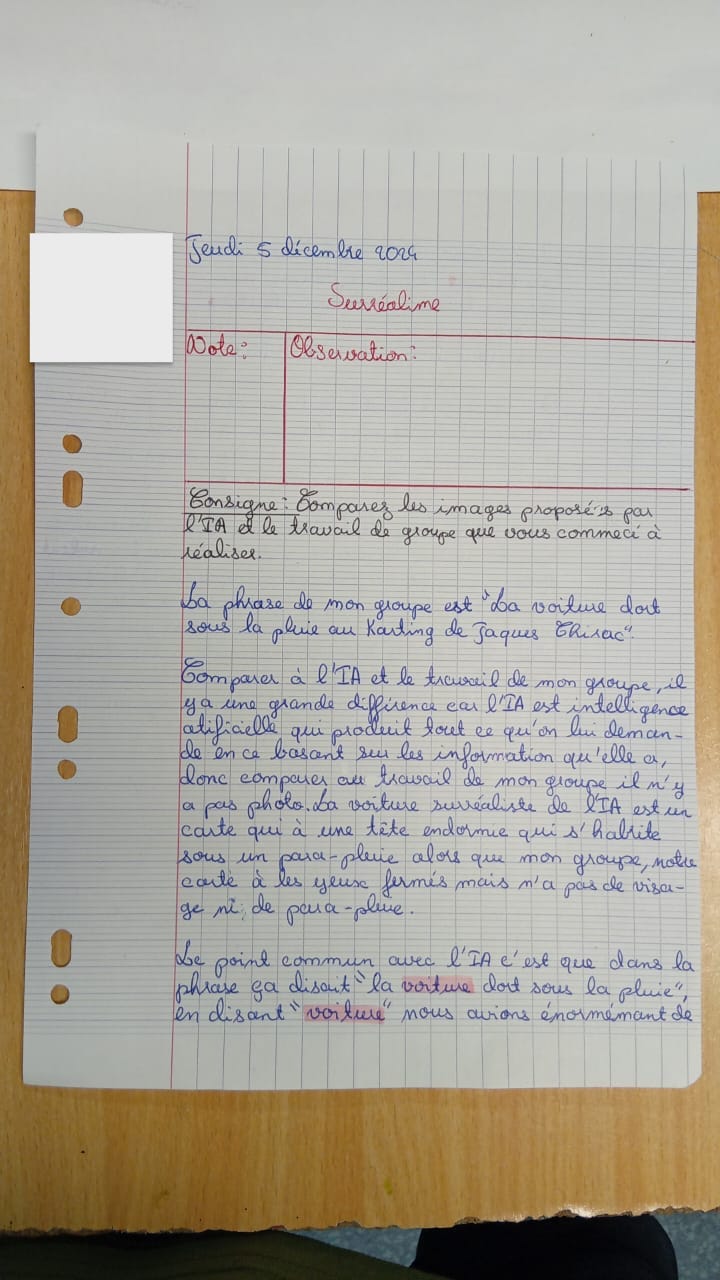 Jeudi 5 décembre 2024
Surréalime
Note:
Observation:
Consigne: Comparez les images proposé's par
l'IA et le travail de groupe que vous commecé à
réaliser.
La phrase de mon groupe est "La voiture dort
sous la pluie au Karting de Jaques Chirac".
Comparer à l'IA et le travail de mon groupe, il
y a une grande différence car l'IA est intelligence
atificielle qui produit tout ce qu'on lui deman-
de en ce basant sur les information qu'elle a,
donc comparer au travail de mon groupe il n'y
a pas photo. La voiture surréaliste de l'IA est un
carte qui à une tête endormie qui s'habrite
sous un para-pluie alors que mon groupe, notre
carte à les yeux fermés mais n'a pas de visa-
ge ni, de para-pluie.
Le point commun avec l'IA c'est que dans la
phrase ça disait "la voiture dort sous la pluie",
en disant "voiture" nous avions énormémant de